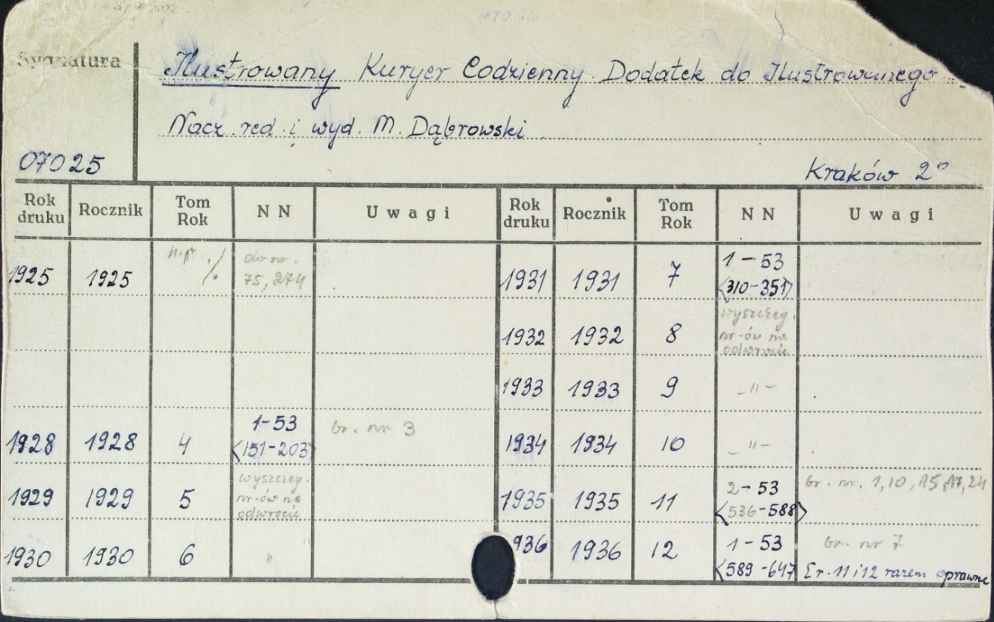 Sygnatura
Ilustrowany Kuryer Codzienny. Dodatek do Ilustrowanego
Nacz. red. i wyd. M. Dąbrowski
07025
Kraków 2°
Rok druku Rocznik Tom Rok NN Uwagi Rok druku Rocznik Tom Rok NN Uwagi
1925 1925 do nr. 75, 274
1931 1931 7 1-53 <310-351>
1932 1932 8 wyszczeg. nr-ów na odwrocie
1933 1933 9 -"-
1928 1928 4 1-53 <151-203> br. nr 3
1934 1934 10 -"-
1929 1929 5 wyszczeg. nr-ów na odwrocie
1935 1935 11 2-53 <536-588> br. nr. 1, 10, 15, 17, 24
1930 1930 6 "
1936 1936 12 1-53 <589-647> br. nr 7
[r. 11 i 12 razem oprawne